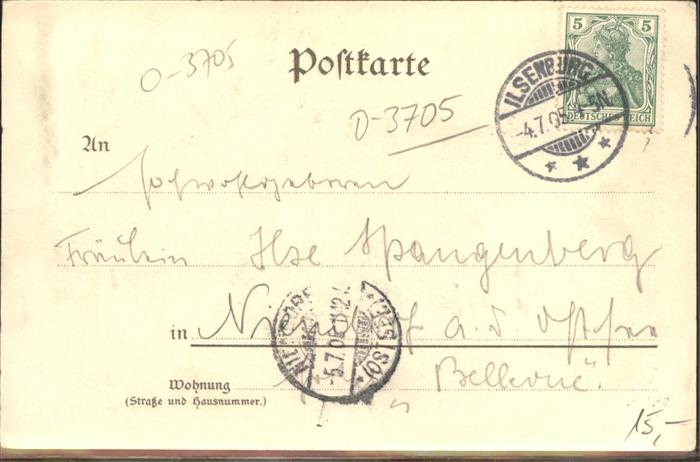 O-3705
Postkarte
5 5
DEUTSCHES REICH
ILSENBURG
-4.7.05 5N
D-3705
An
Hochwohlgeboren
Fräulein Ilse Spangenberg
in Niendorf a.d. Ostsee
(OSTSEE)
-5.7.05
Bellevue.
Wohnung
(Straße und Hausnummer.)
15,-